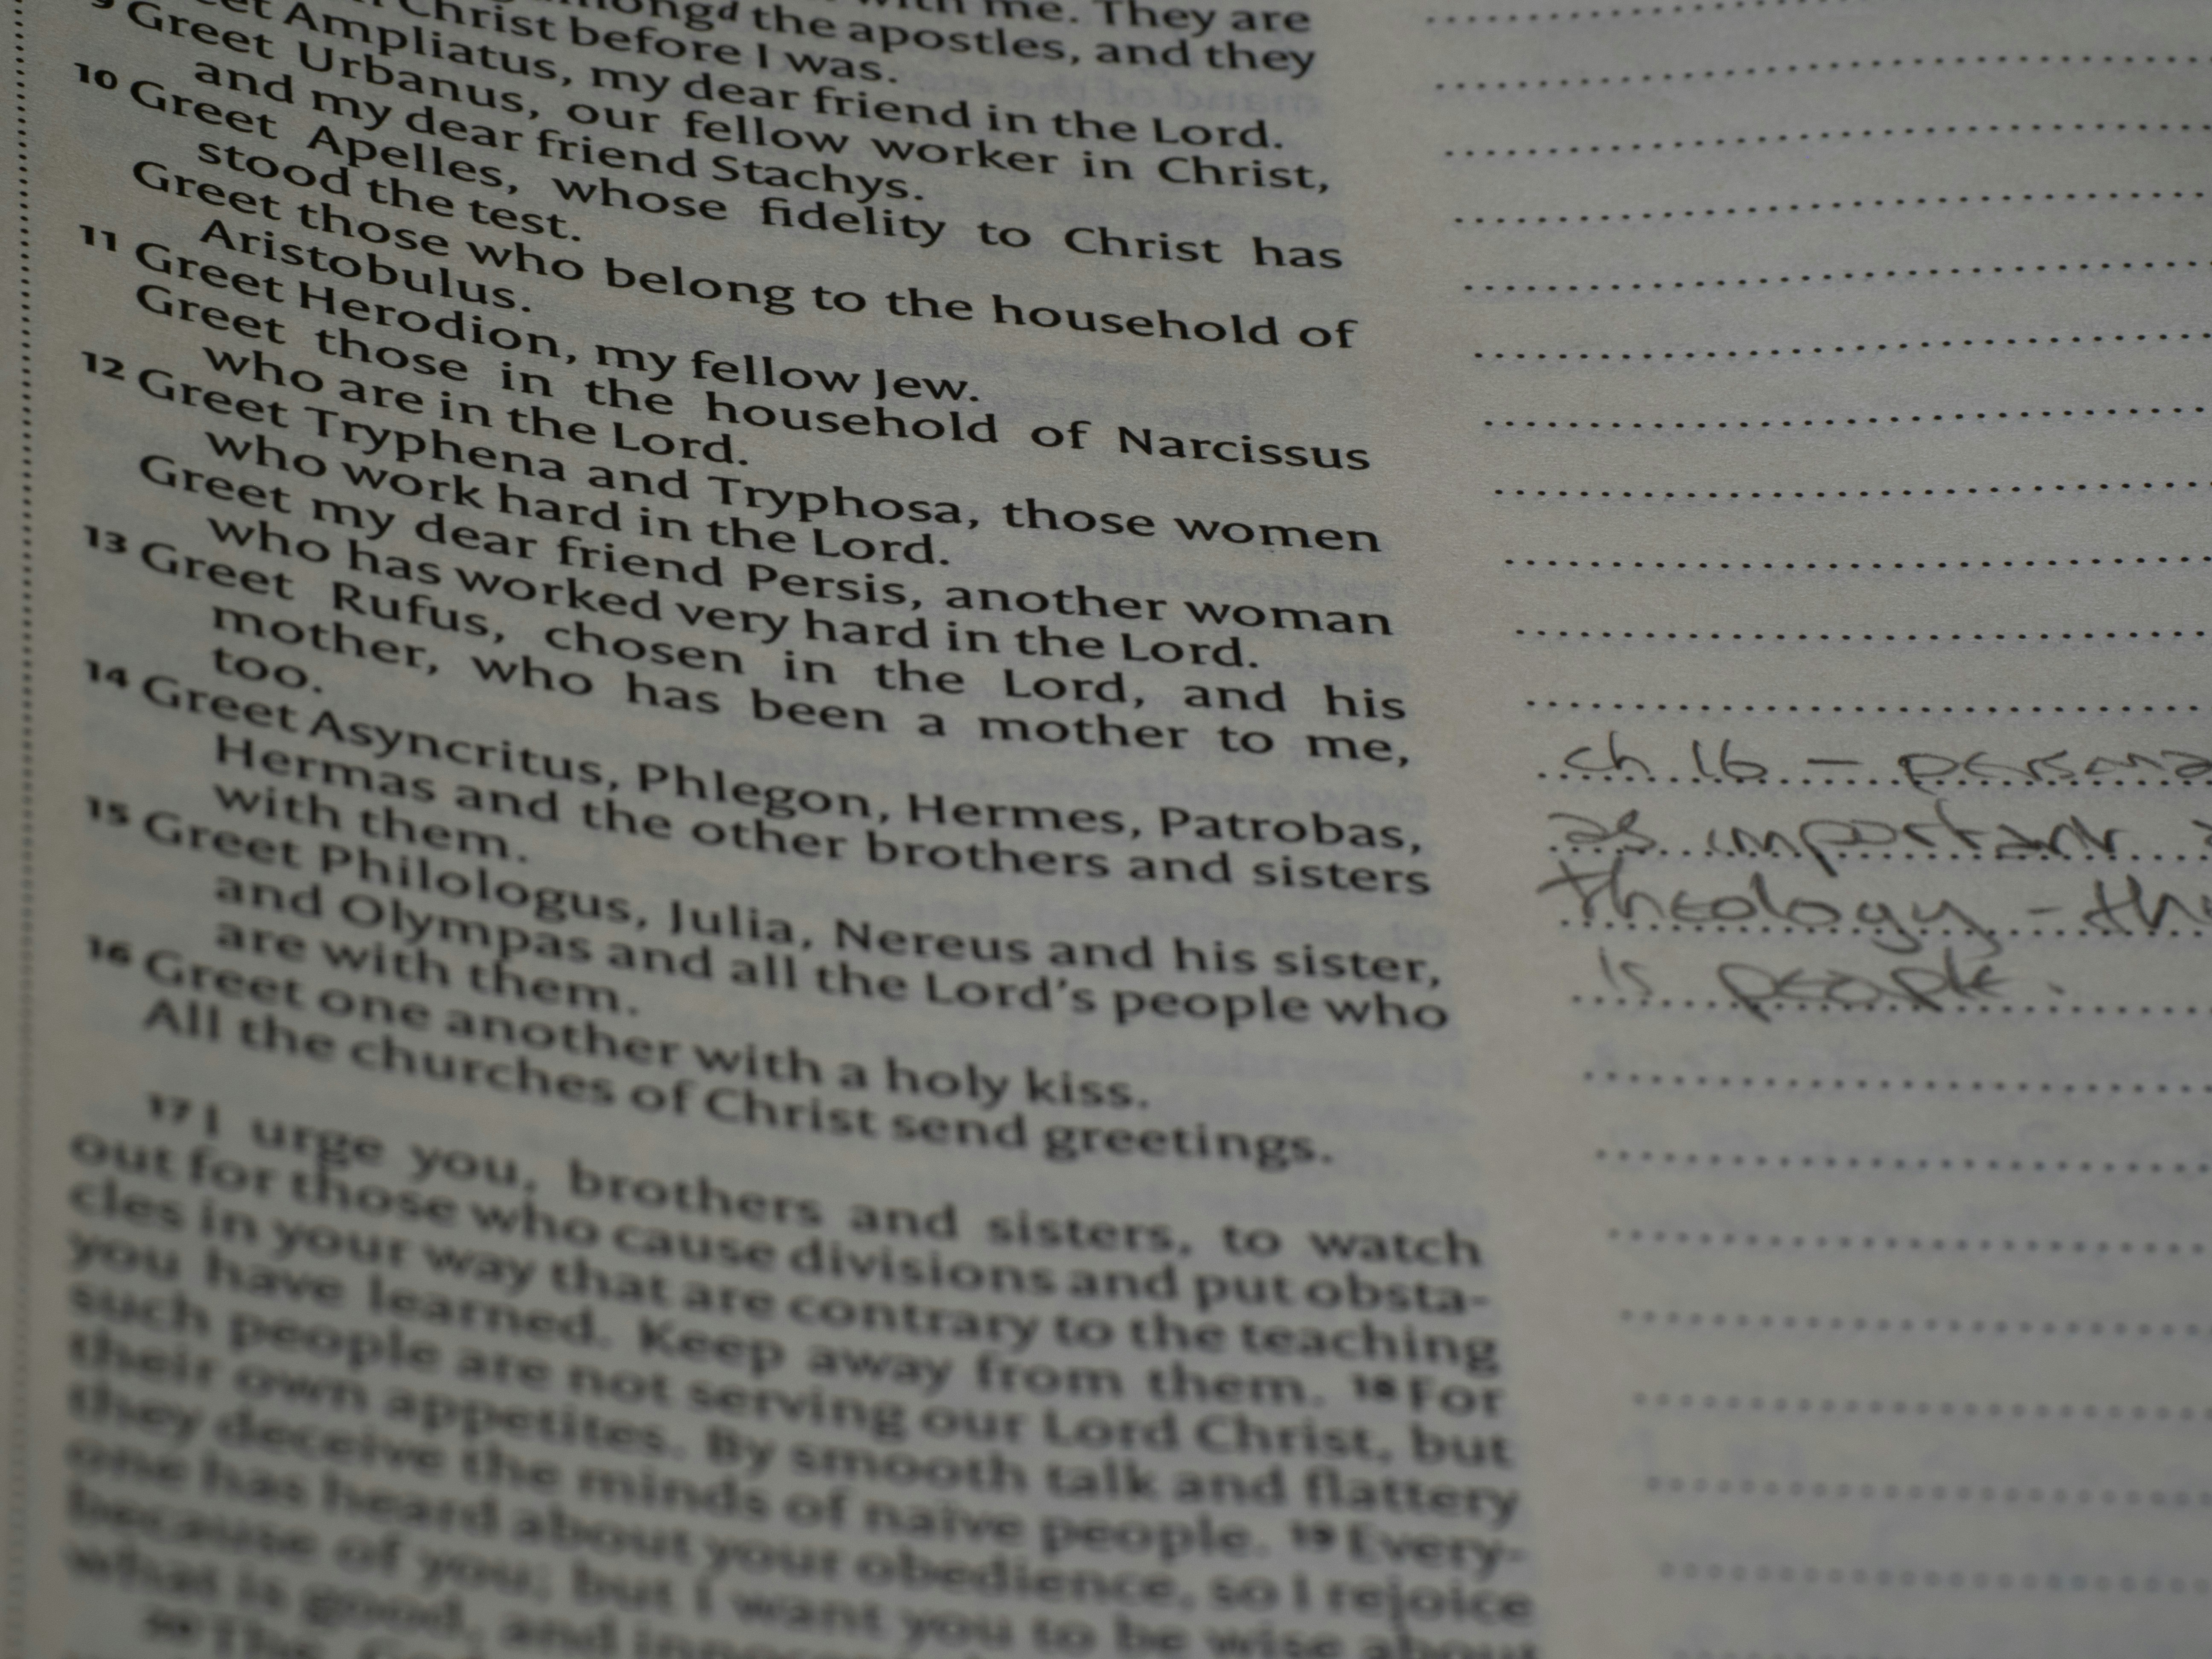 with me. They are
the apostles, and they
Christ before I was.
Ampliatus, my dear friend in the Lord.
9 Greet Urbanus, our fellow worker in Christ,
and my dear friend Stachys.
10 Greet Apelles, whose fidelity to Christ has
stood the test.
Greet those who belong to the household of
Aristobulus.
11 Greet Herodion, my fellow Jew.
Greet those in the household of Narcissus
who are in the Lord.
12 Greet Tryphena and Tryphosa, those women
who work hard in the Lord.
Greet my dear friend Persis, another woman
who has worked very hard in the Lord.
13 Greet Rufus, chosen in the Lord, and his
mother, who has been a mother to me,
too.
14 Greet Asyncritus, Phlegon, Hermes, Patrobas,
Hermas and the other brothers and sisters
with them.
15 Greet Philologus, Julia, Nereus and his sister,
and Olympas and all the Lord's people who
are with them.
16 Greet one another with a holy kiss.
All the churches of Christ send greetings.
17 I urge you, brothers and sisters, to watch
out for those who cause divisions and put obsta-
cles in your way that are contrary to the teaching
you have learned. Keep away from them. 18 For
such people are not serving our Lord Christ, but
their own appetites. By smooth talk and flattery
they deceive the minds of naive people. 19 Every-
one has heard about your obedience, so I rejoice
because of you; but I want you to be wise about
what is good, and
20 The
ch 16 –
as important
theology –
is people.